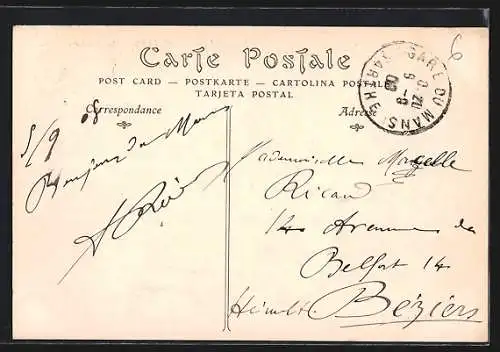 Carte Postale
POST CARD — POSTKARTE — CARTOLINA POSTALE
TARJETA POSTAL
Correspondance
Adresse
GARE DU MANS
SARTHE
6
5/9 08
Bonjour du Mans
Mademoiselle Marcelle
Ricard
14 Avenue de
Belfort 14
Béziers
Hérault